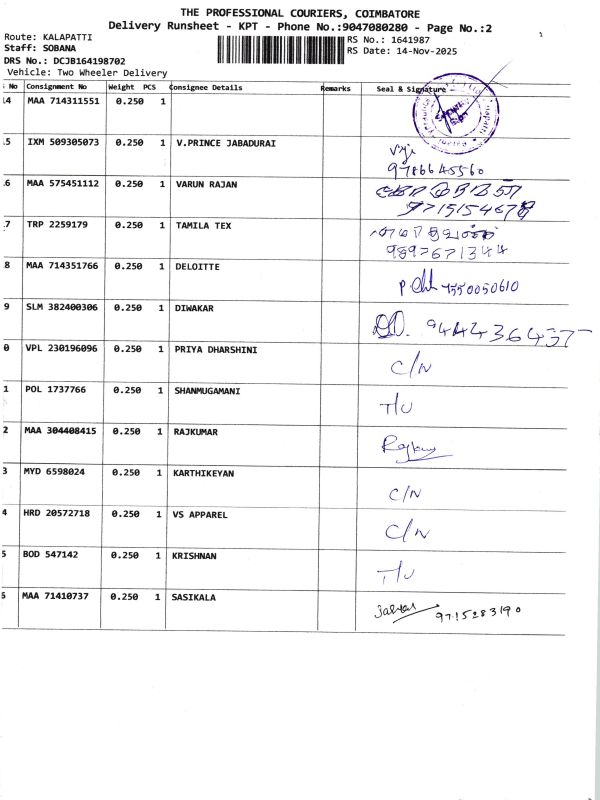 THE PROFESSIONAL COURIERS, COIMBATORE
Delivery Runsheet - KPT - Phone No.:9047080280 - Page No.:2
Route: KALAPATTI
Staff: SOBANA
DRS No.: DCJB164198702
Vehicle: Two Wheeler Delivery
RS No.: 1641987
RS Date: 14-Nov-2025
No Consignment No Weight PCS Consignee Details Remarks Seal & Signature
14 MAA 714311551 0.250 1
5 IXM 509305073 0.250 1 V.PRINCE JABADURAI
9786645560
6 MAA 575451112 0.250 1 VARUN RAJAN
9715154678
7 TRP 2259179 0.250 1 TAMILA TEX
9892671344
8 MAA 714351766 0.250 1 DELOITTE
7550050610
9 SLM 382400306 0.250 1 DIWAKAR
0 VPL 230196096 0.250 1 PRIYA DHARSHINI C/N
1 POL 1737766 0.250 1 SHANMUGAMANI T/U
2 MAA 304408415 0.250 1 RAJKUMAR
3 MYD 6598024 0.250 1 KARTHIKEYAN C/N
4 HRD 20572718 0.250 1 VS APPAREL C/N
5 BOD 547142 0.250 1 KRISHNAN T/U
6 MAA 71410737 0.250 1 SASIKALA 9715283190